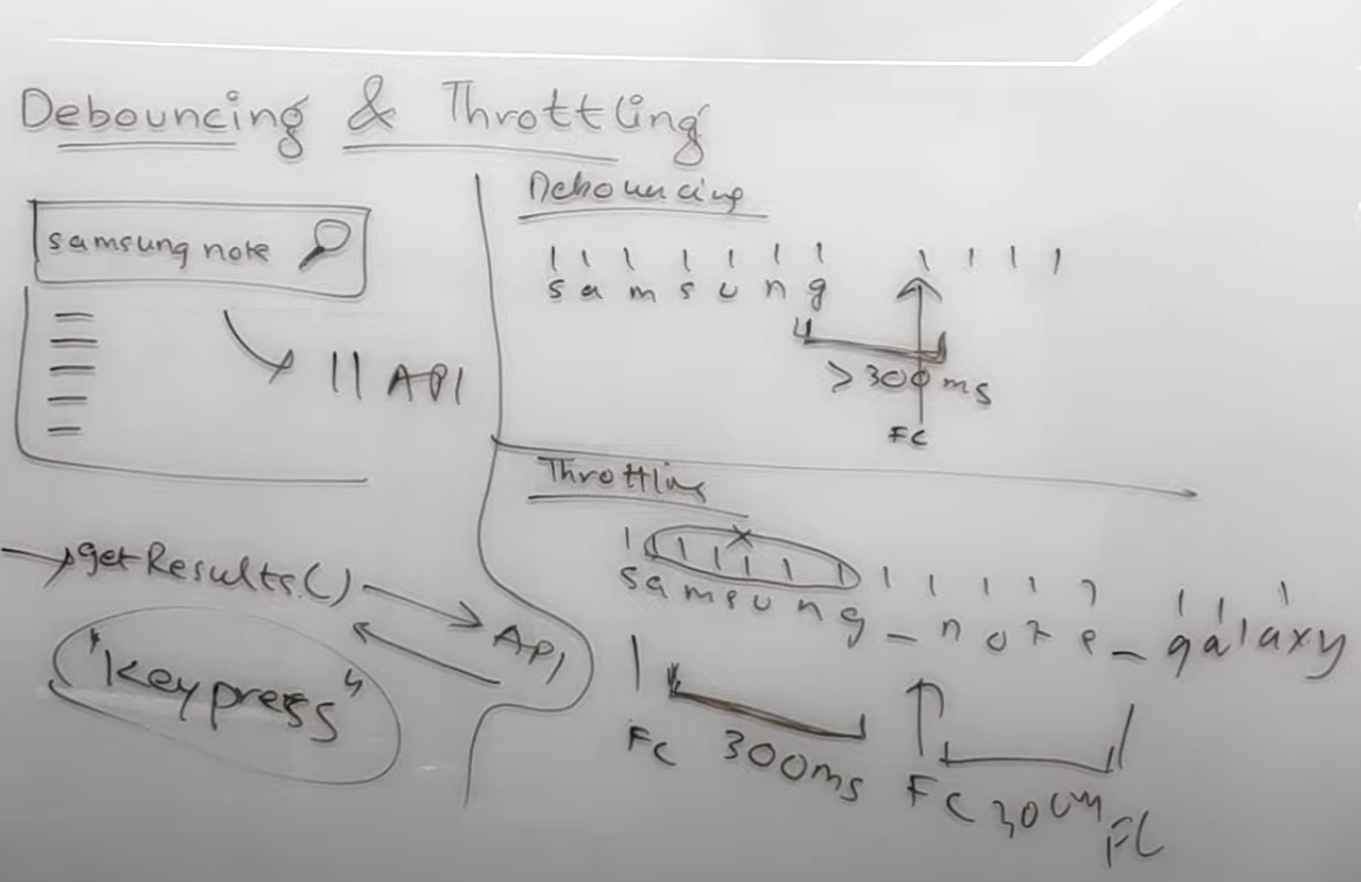 Debouncing & Throttling
samsung note
|| API
getResults()
API
"Keypress"
Debouncing
s a m s u n g
>300ms
FC
Throttling
samsung_note_galaxy
FC 300ms FC 300m FC